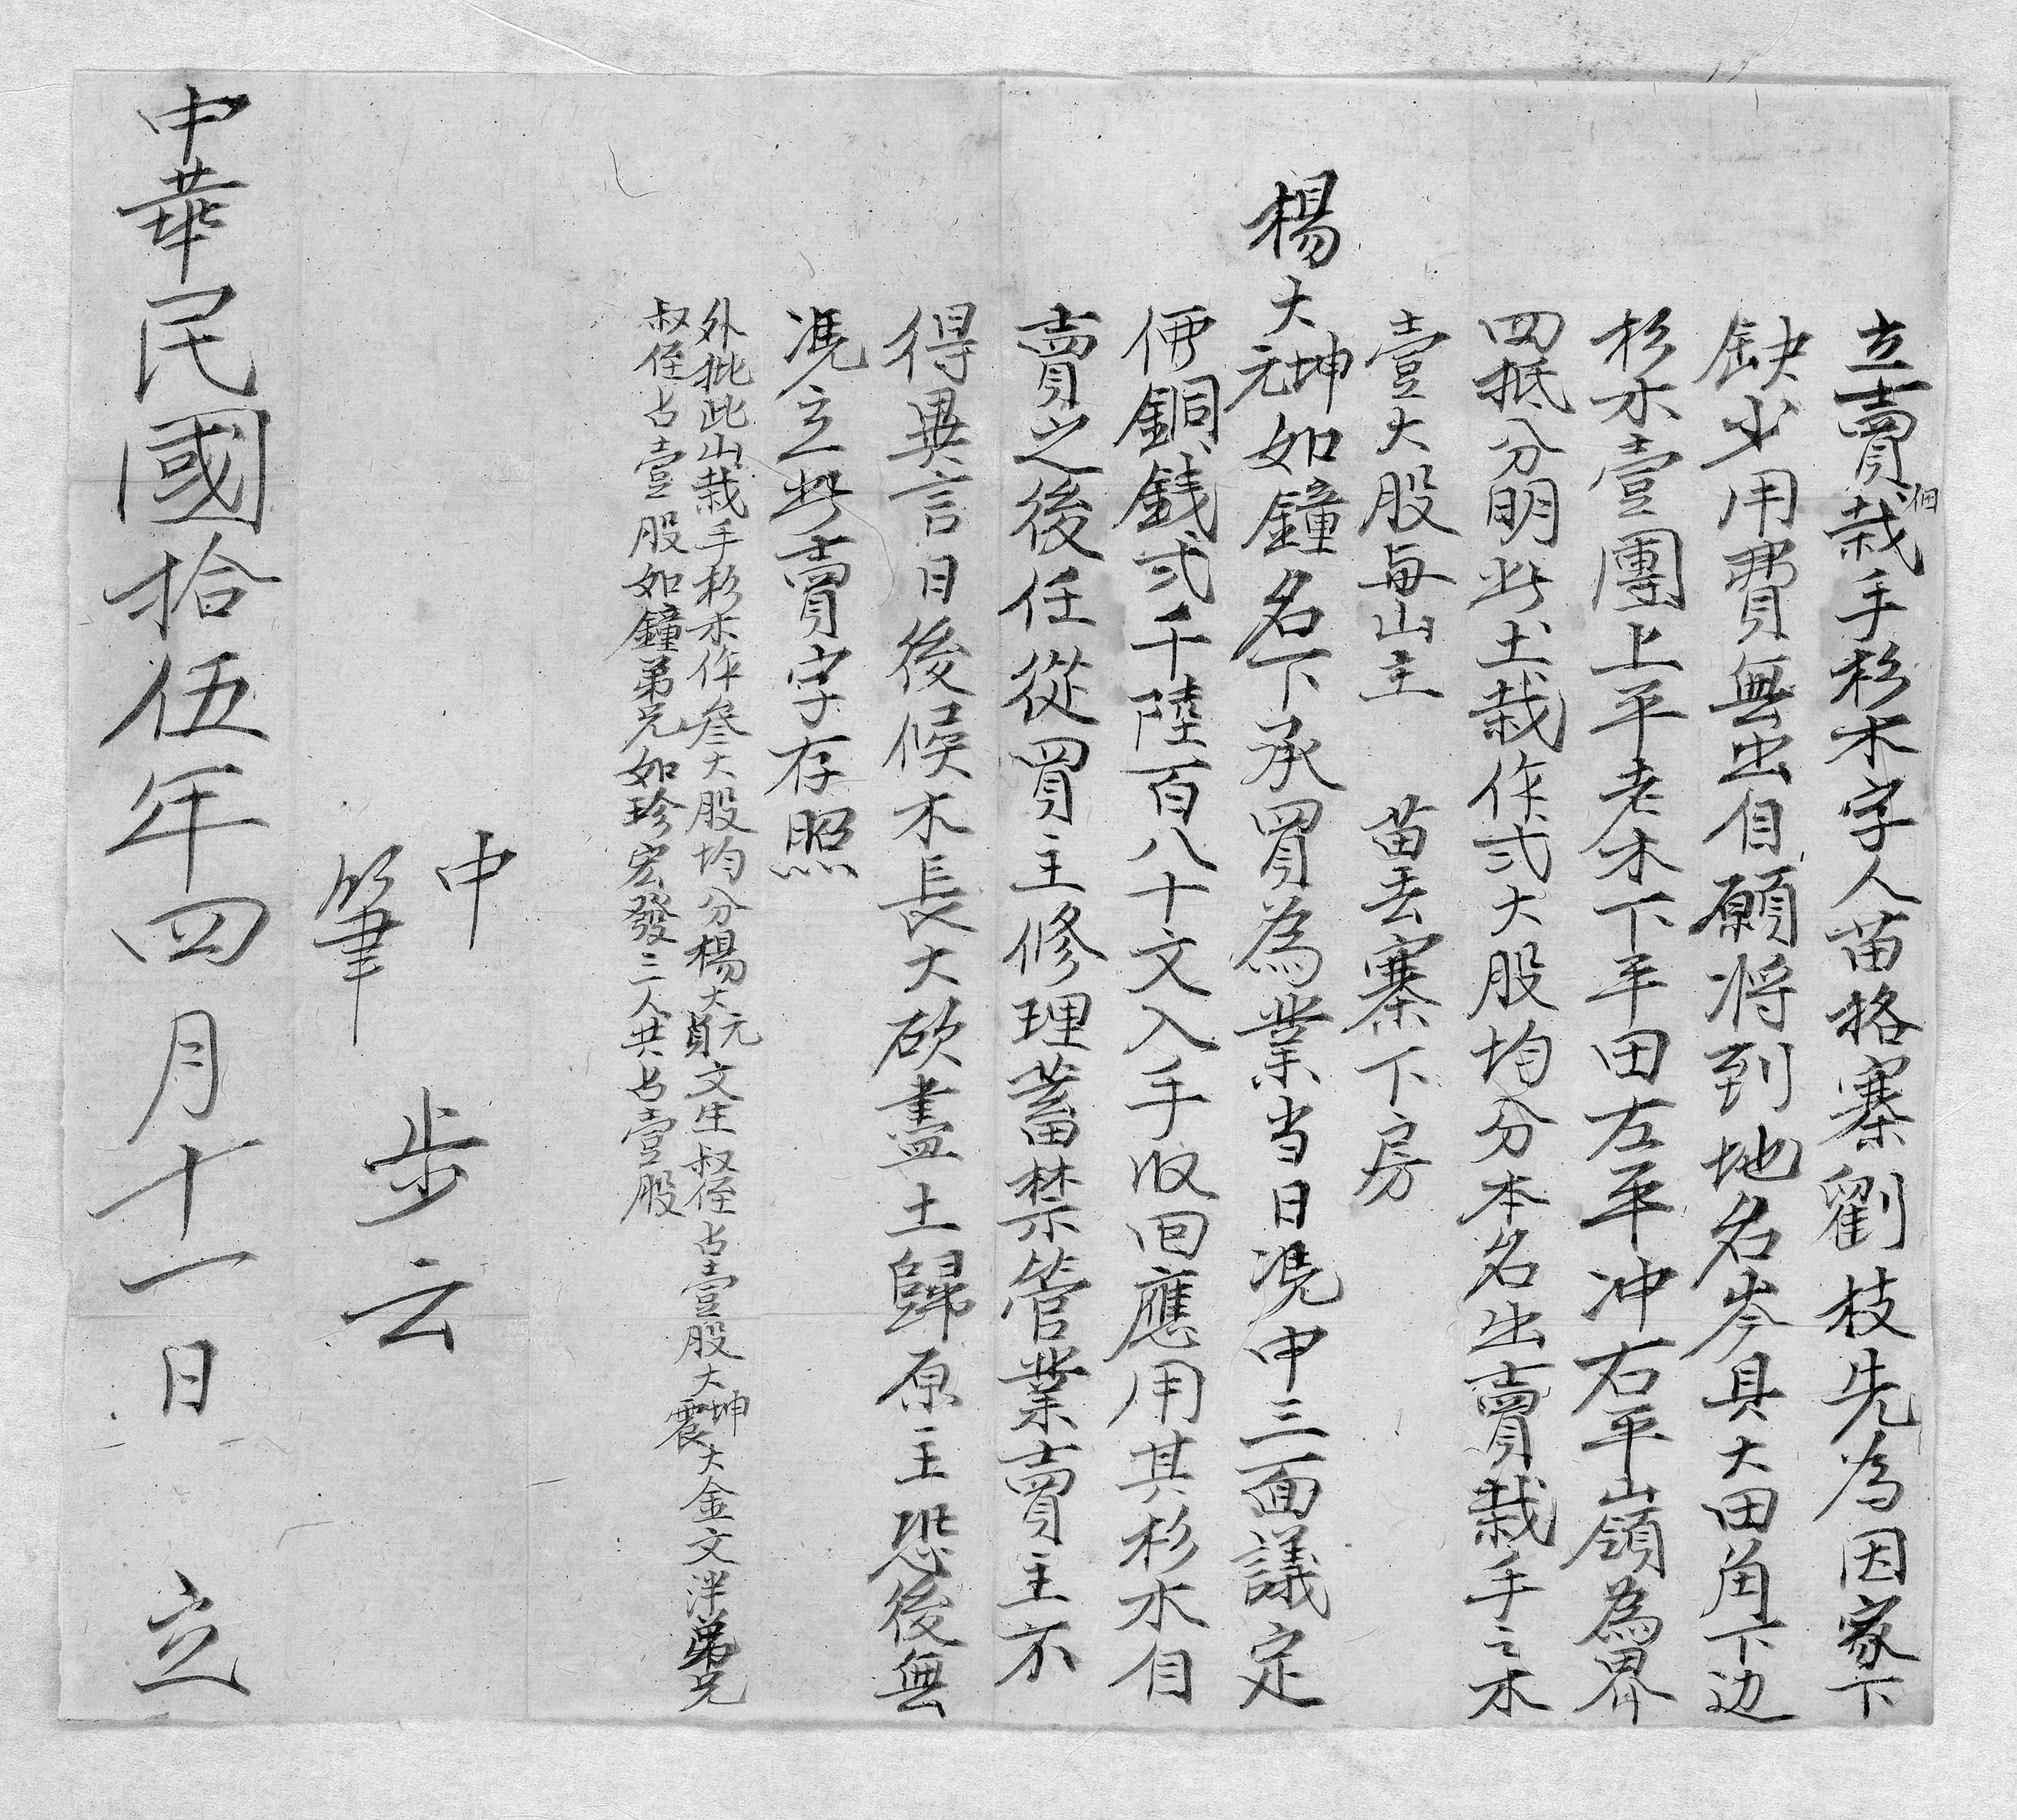 立賣佃栽手杉木字人苗格寨劉枝先為因家下
缺少用費無出自願将到地名岑具大田角下边
杉木壹團上平老木下平田左平冲右平山嶺為界
四抵分明此土栽作弍大股均分本名出賣栽手之木
壹大股与山主 苗丢寨下房
楊大坤元如鐘名下承買為業当日凴中三面議定
価銅銭弍千陸百八十文入手收囬應用其杉木自
賣之後任從買主修理蓄禁管業賣主不
得異言日後候木長大砍盡土歸原主恐後無
凴立此賣字存照
外批此山栽手杉木作叄大股均分楊大元貞文生叔侄占壹股大坤震大金文泮弟兄
叔侄占壹股如鐘弟兄如珍宏發三人共占壹股
中
筆 步云
中華民國拾伍年四月十一日 立